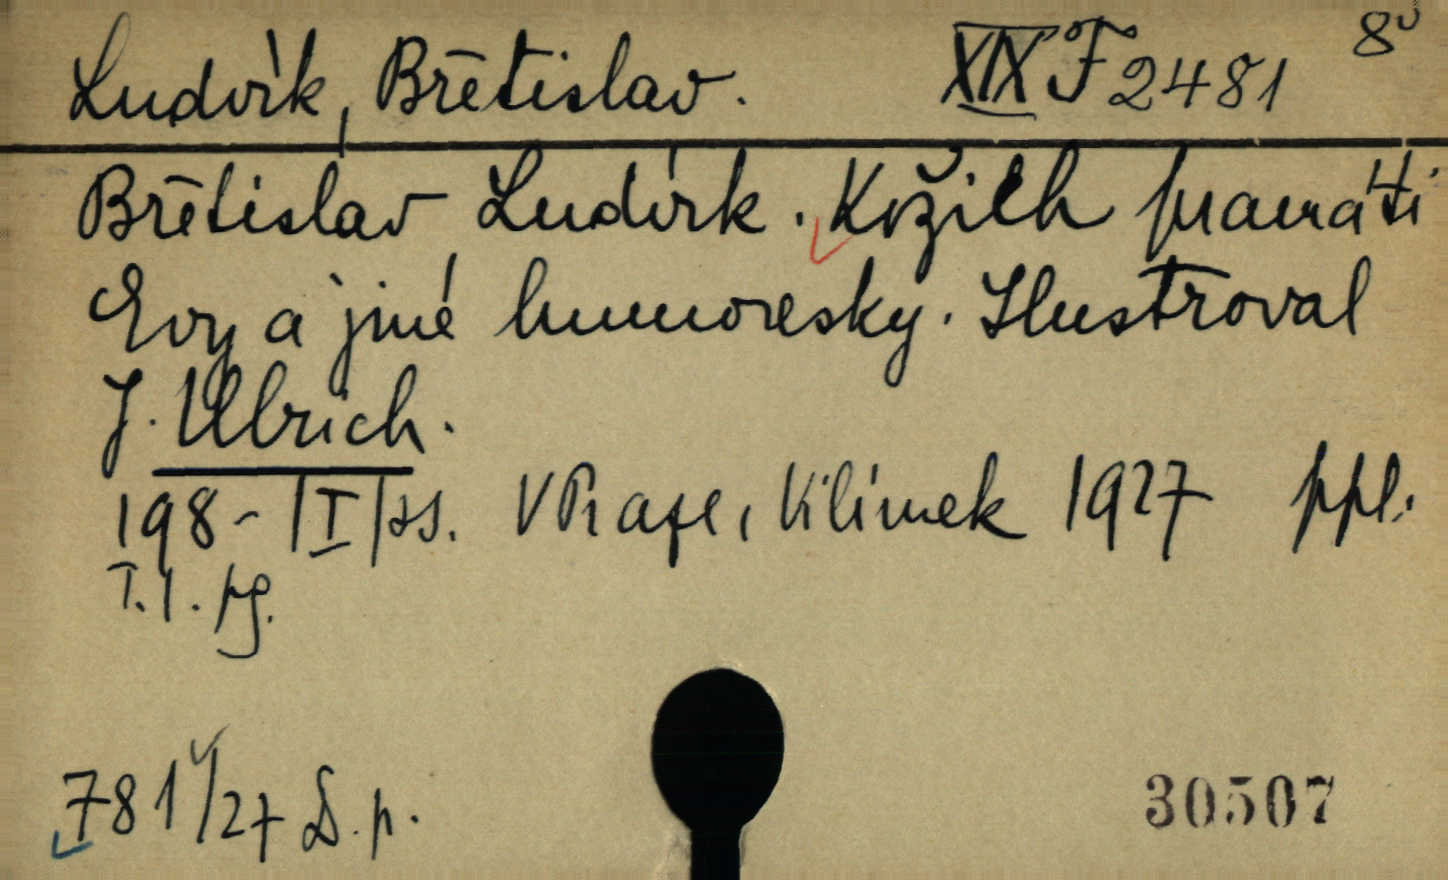 Ludvík, Břetislav. XIX F 2481 8°
Břetislav Ludvík. Kožich pramáti
Evy a jiné humoresky. Ilustroval
J. Ulbrich.
198 - |I| ss. V Praze, Vilímek 1927 ppl.
T. 1. pg.
781/27 D. p.
30507